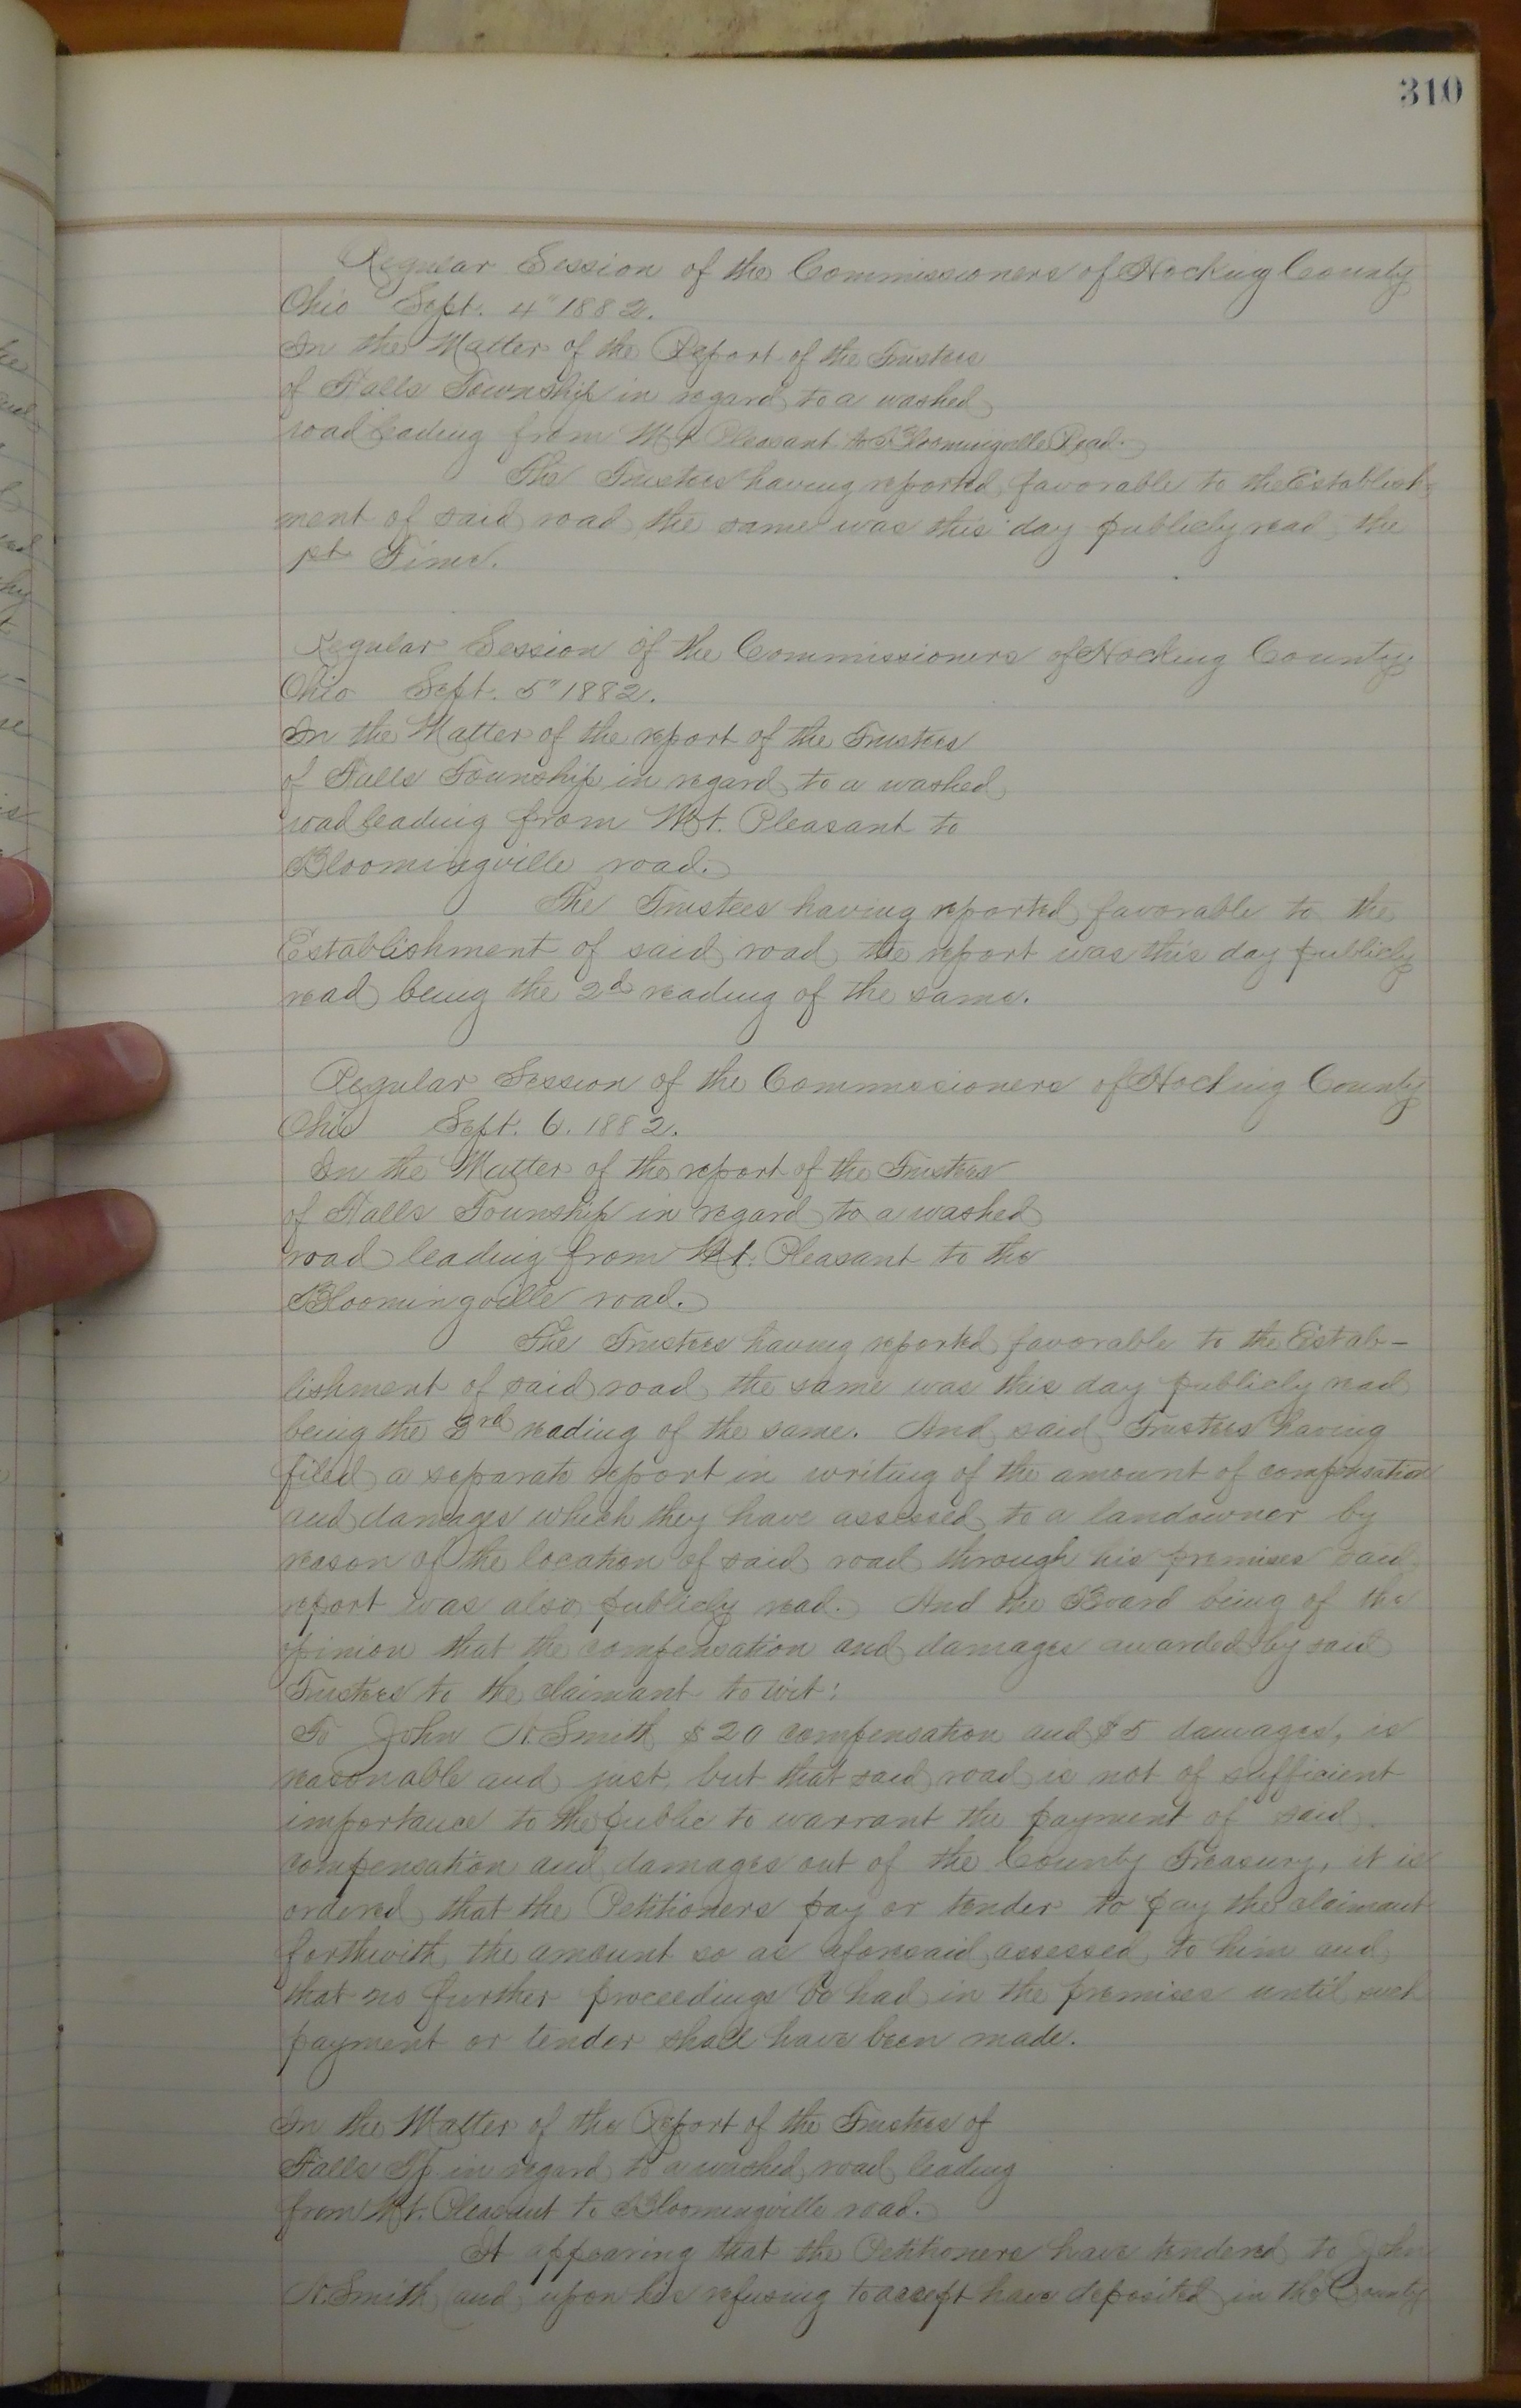 310
Regular Session of the Commissioners of Hocking County
Ohio Sept. 4" 1882.
In the Matter of the Report of the Trustees
of Falls Township in regard to a washed
road leading from Mt. Pleasant to Bloomingville Road.
The Trustees having reported favorable to the Establish-
ment of said road the same was this day publicly read the
1st Time.
Regular Session of the Commissioners of Hocking County
Ohio Sept. 5" 1882.
In the Matter of the report of the Trustees
of Falls Township in regard to a washed
road leading from Mt. Pleasant to
Bloomingville road.
The Trustees having reported favorable to the
Establishment of said road the report was this day publicly
read being the 2d reading of the same.
Regular Session of the Commissioners of Hocking County
Ohio Sept. 6. 1882.
In the Matter of the report of the Trustees
of Falls Township in regard to a washed
road leading from Mt. Pleasant to the
Bloomingville road.
The Trustees having reported favorable to the Estab-
lishment of said road the same was this day publicly read
being the 3rd reading of the same. And said Trustees having
filed a separate report in writing of the amount of compensation
and damages which they have assessed to a landowner by
reason of the location of said road through his premises said
report was also publicly read. And the Board being of the
opinion that the compensation and damages awarded by said
Trustees to the claimant to wit:
To John N. Smith $20 compensation and $5 damages, is
reasonable and just, but that said road is not of sufficient
importance to the public to warrant the payment of said
compensation and damages out of the County Treasury, it is
ordered that the Petitioners pay or tender to pay the claimant
forthwith the amount so as aforesaid assessed to him and
that no further proceedings be had in the premises until such
payment or tender shall have been made.
In the Matter of the Report of the Trustees of
Falls Tp in regard to a washed road leading
from Mt. Pleasant to Bloomingville road.
It appearing that the Petitioners have tendered to John
N. Smith and upon his refusing to accept have deposited in the County